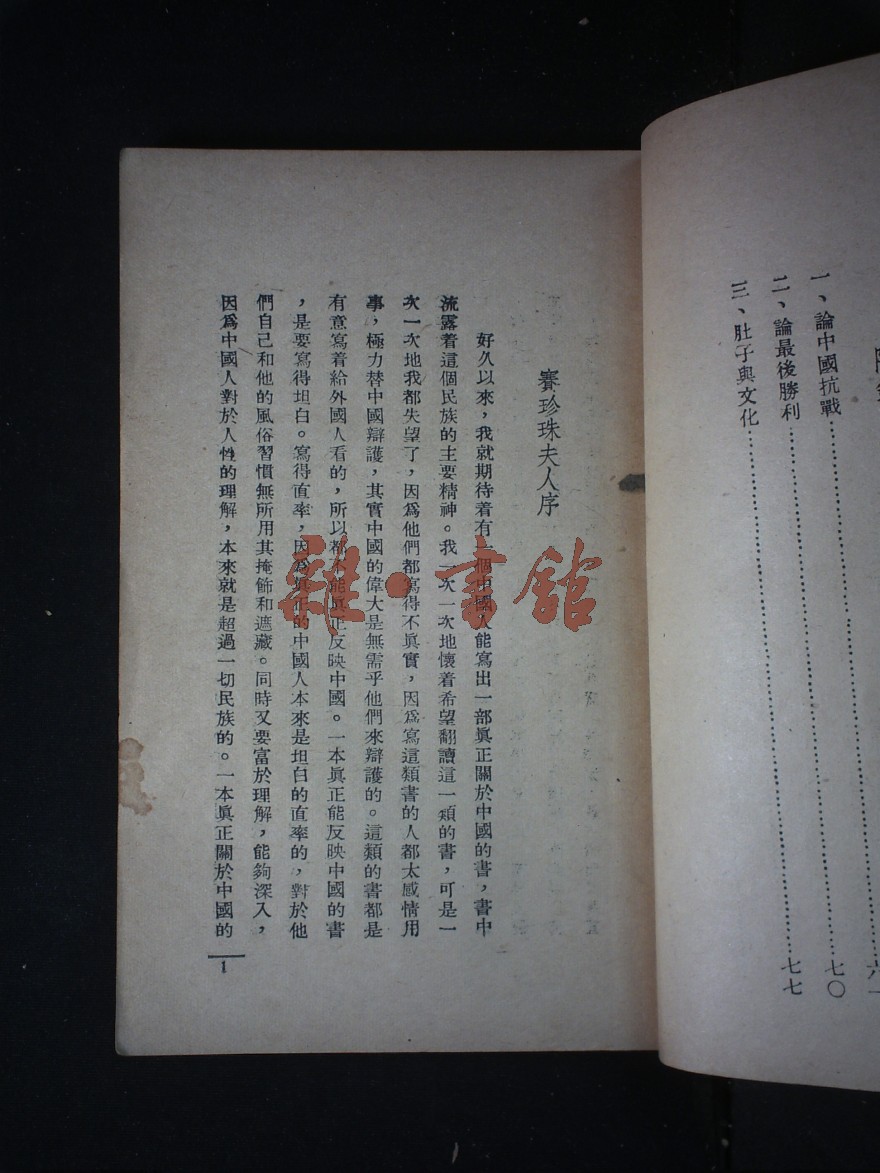 一、論中國抗戰……六一
二、論最後勝利……七〇
三、肚子與文化……七七
賽珍珠夫人序
好久以來，我就期待着有一個中國人能寫出一部眞正關於中國的書，書中
流露着這個民族的主要精神。我一次一次地懷着希望翻讀這一類的書，可是一
次一次地我都失望了，因爲他們都寫得不眞實，因爲寫這類書的人都太感情用
事，極力替中國辯護，其實中國的偉大是無需乎他們來辯護的。這類的書都是
有意寫着給外國人看的，所以都不能眞正反映中國。一本眞正能反映中國的書
，是要寫得坦白。寫得直率，因爲眞正的中國人本來是坦白的直率的，對於他
們自己和他的風俗習慣無所用其掩飾和遮藏。同時又要富於理解，能夠深入，
因爲中國人對於人性的理解，本來就是超過一切民族的。一本眞正關於中國的
1
雜·書館